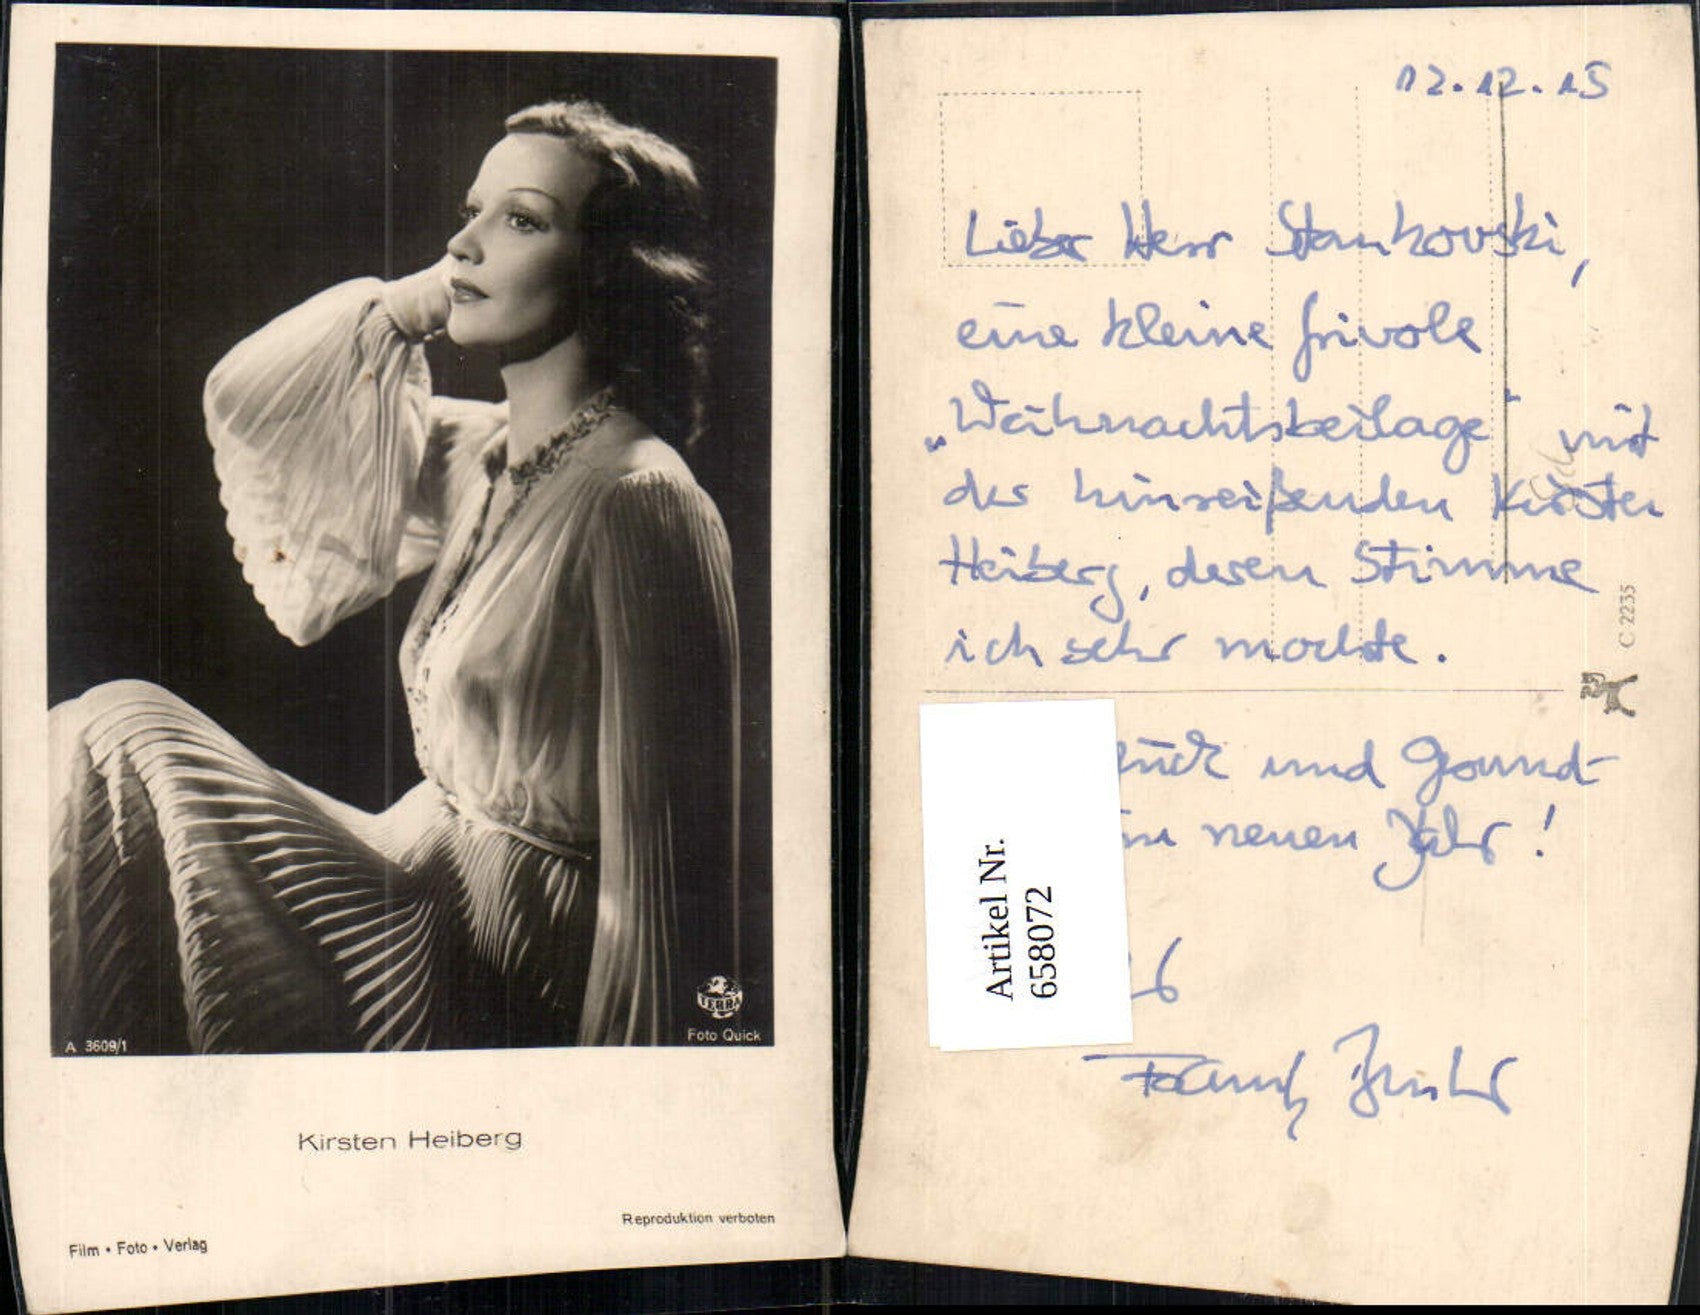 TERRA
Foto Quick
A 3609/1
Kirsten Heiberg
Reproduktion verboten
Film • Foto • Verlag
12.12.15
Lieber Herr Stankovski,
eine kleine frivole
„Weihnachtsbeilage“ mit
der hinreißenden Kirsten
Heiberg, deren Stimme
ich sehr mochte.
C 2235
und Gesund-
neuen Jahr!
Artikel Nr.
658072